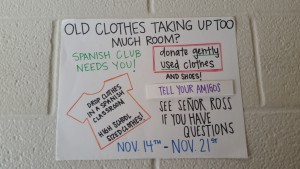 OLD CLOTHES TAKING UP TOO
MUCH ROOM?
SPANISH CLUB
NEEDS YOU!
donate gently
used clothes
AND SHOES!
DROP CLOTHES
IN A SPANISH
CLASSROOM
HIGH SCHOOL
SIZED CLOTHES!
TELL YOUR AMIGOS
SEE SEÑOR ROSS
IF YOU HAVE
QUESTIONS
NOV. 14TH - NOV. 21ST